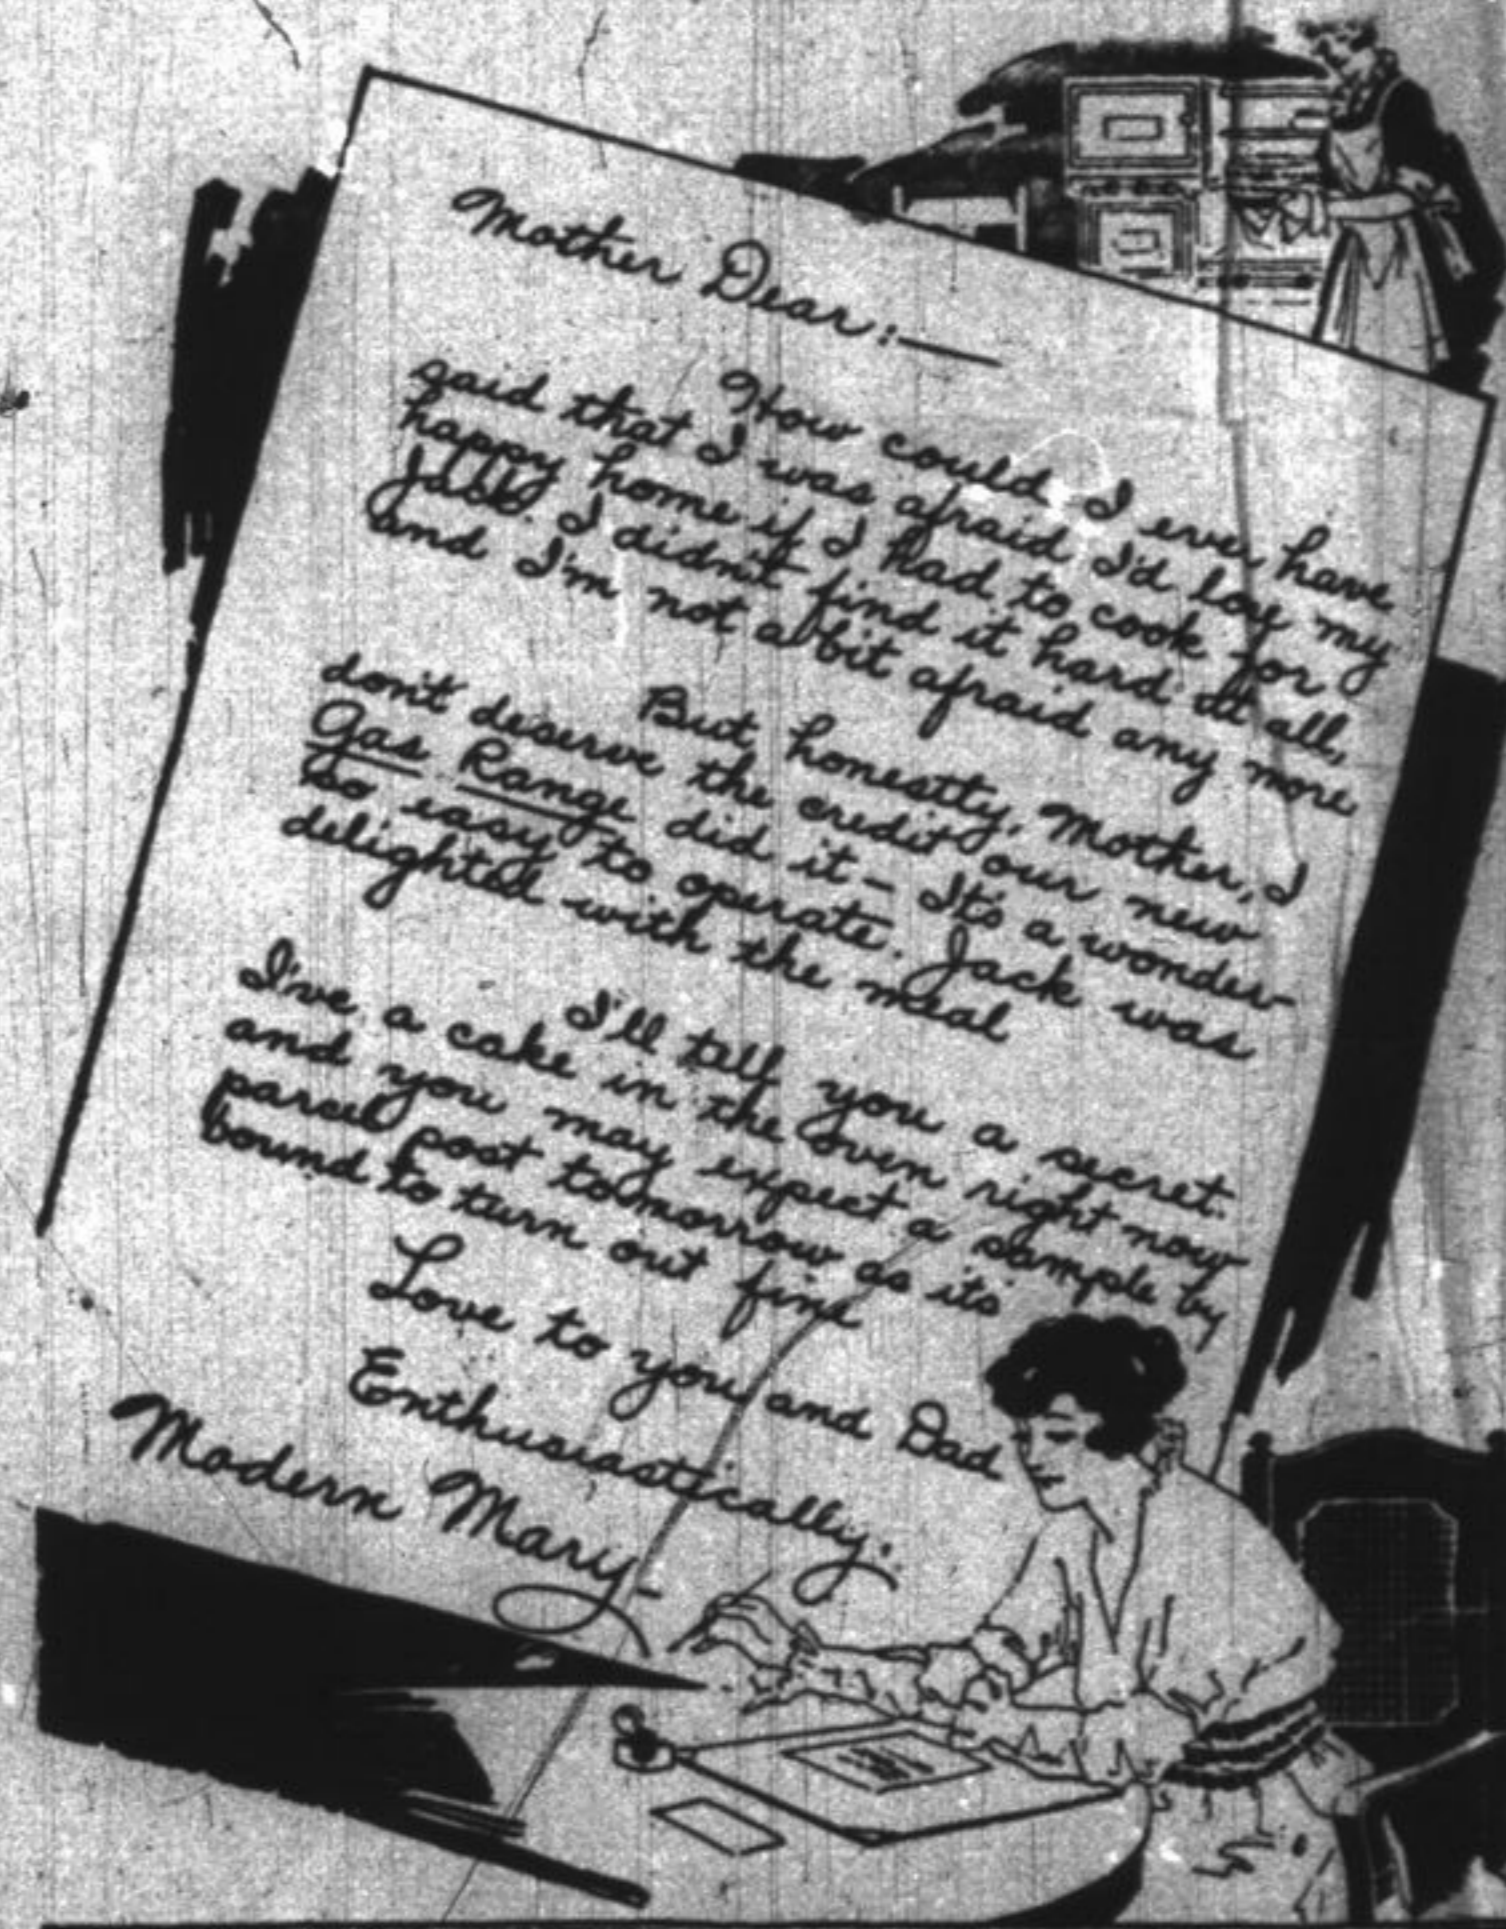 Mother Dear:—
How could I ever have
said that I was afraid I'd lose my
happy home if I had to cook for
Jack. I didn't find it hard at all,
and I'm not a bit afraid any more
But, honestly, Mother, I
don't deserve the credit our new
Gas Range did it – It's a wonder
so easy to operate. Jack was
delighted with the meal
I'll tell you a secret.
I've a cake in the oven right now
and you may expect a sample by
parcel post tomorrow as its
bound to turn out fine
Love to you and Dad
Enthusiastically.
Modern Mary–